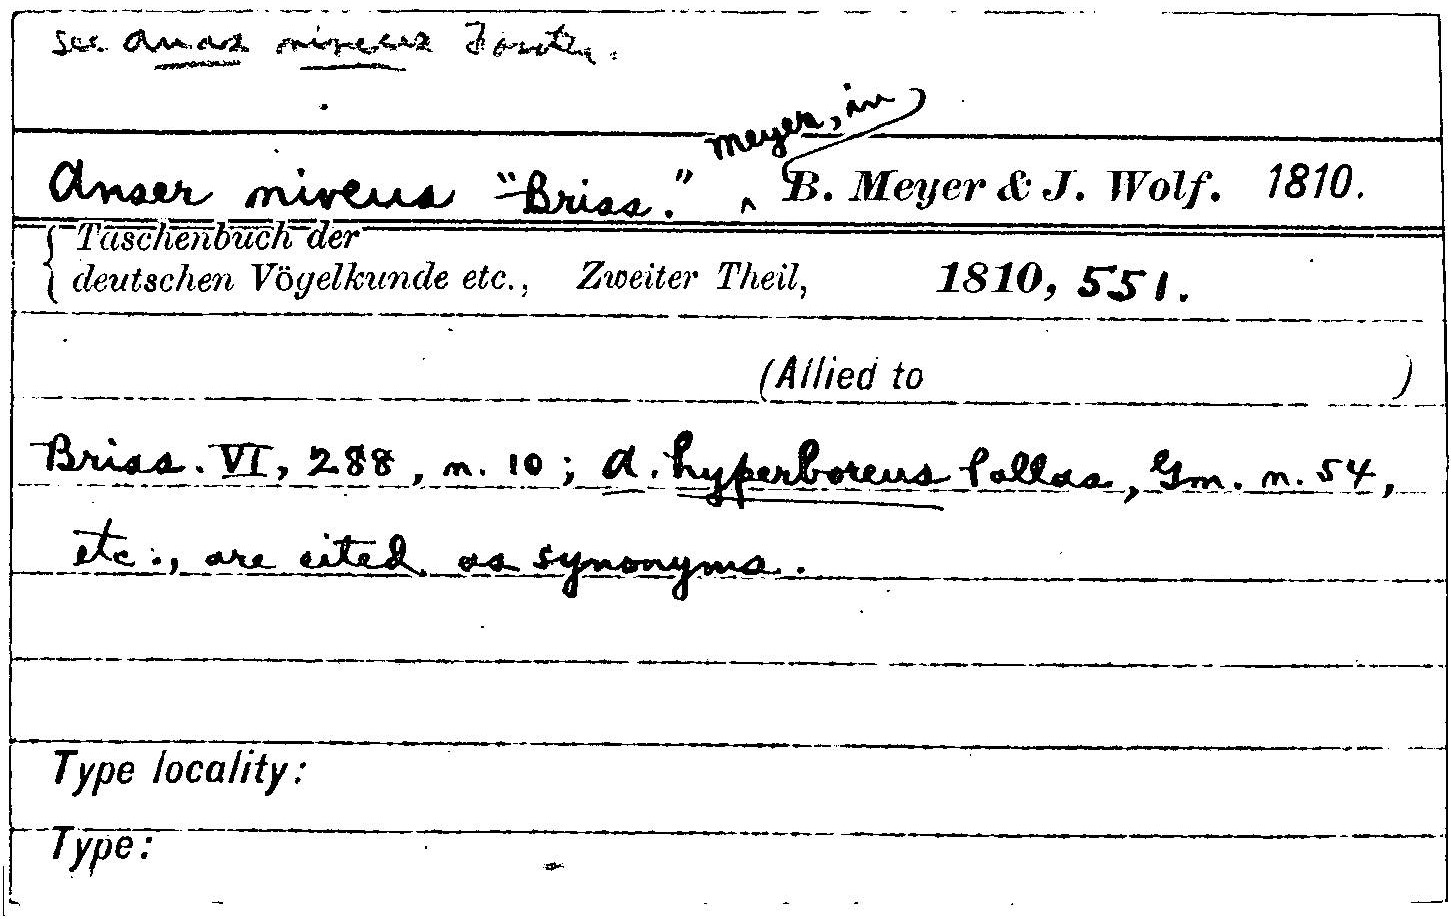 see Anas niveus Forster.
Meyer, in
Anser niveus "Briss." ^ B. Meyer & J. Wolf. 1810.
{ Taschenbuch der
deutschen Vögelkunde etc., Zweiter Theil, 1810, 551.
(Allied to )
Briss. VI, 288, n. 10; A. hyperboreus Pallas, Gm. n. 54,
etc., are cited as synonyms.
Type locality:
Type: